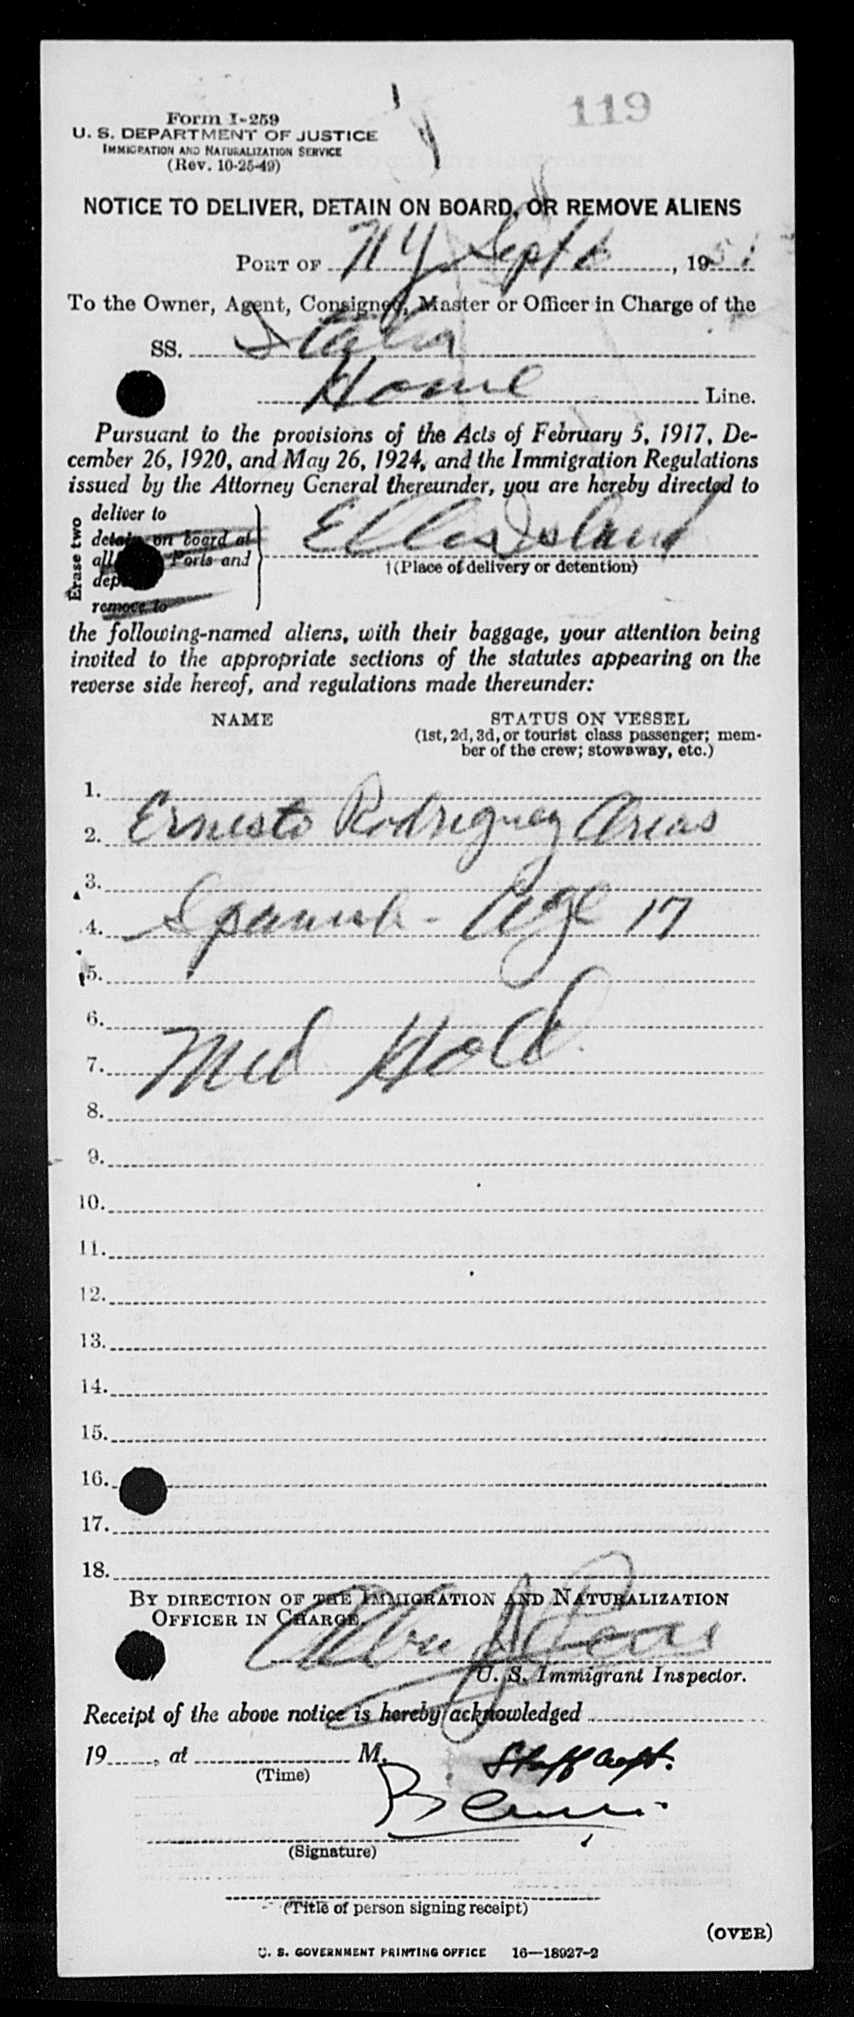 119
Form I-259
U. S. DEPARTMENT OF JUSTICE
IMMIGRATION AND NATURALIZATION SERVICE
(Rev. 10-25-49)
NOTICE TO DELIVER, DETAIN ON BOARD, OR REMOVE ALIENS
PORT OF NY Sept, 1951
To the Owner, Agent, Consignee, Master or Officer in Charge of the
SS.
Home Line.
Pursuant to the provisions of the Acts of February 5, 1917, De-
cember 26, 1920, and May 26, 1924, and the Immigration Regulations
issued by the Attorney General thereunder, you are hereby directed to
Erase two
deliver to
detain on board at
all Ports and
remove to
Ellis Island
†(Place of delivery or detention)
the following-named aliens, with their baggage, your attention being
invited to the appropriate sections of the statutes appearing on the
reverse side hereof, and regulations made thereunder:
NAME STATUS ON VESSEL
(1st, 2d, 3d, or tourist class passenger; mem-
ber of the crew; stowaway, etc.)
1.
2. Ernesto Rodriguez Arias
3.
4. Spanish - Age 17
5.
6.
7. Med Hold
8.
9.
10.
11.
12.
13.
14.
15.
16.
17.
18.
BY DIRECTION OF THE IMMIGRATION AND NATURALIZATION
OFFICER IN CHARGE.
U. S. Immigrant Inspector.
Receipt of the above notice is hereby acknowledged
19 , at M.
(Time)
Staff Capt.
(Signature)
(Title of person signing receipt)
(OVER)
U. S. GOVERNMENT PRINTING OFFICE 16—18927-2